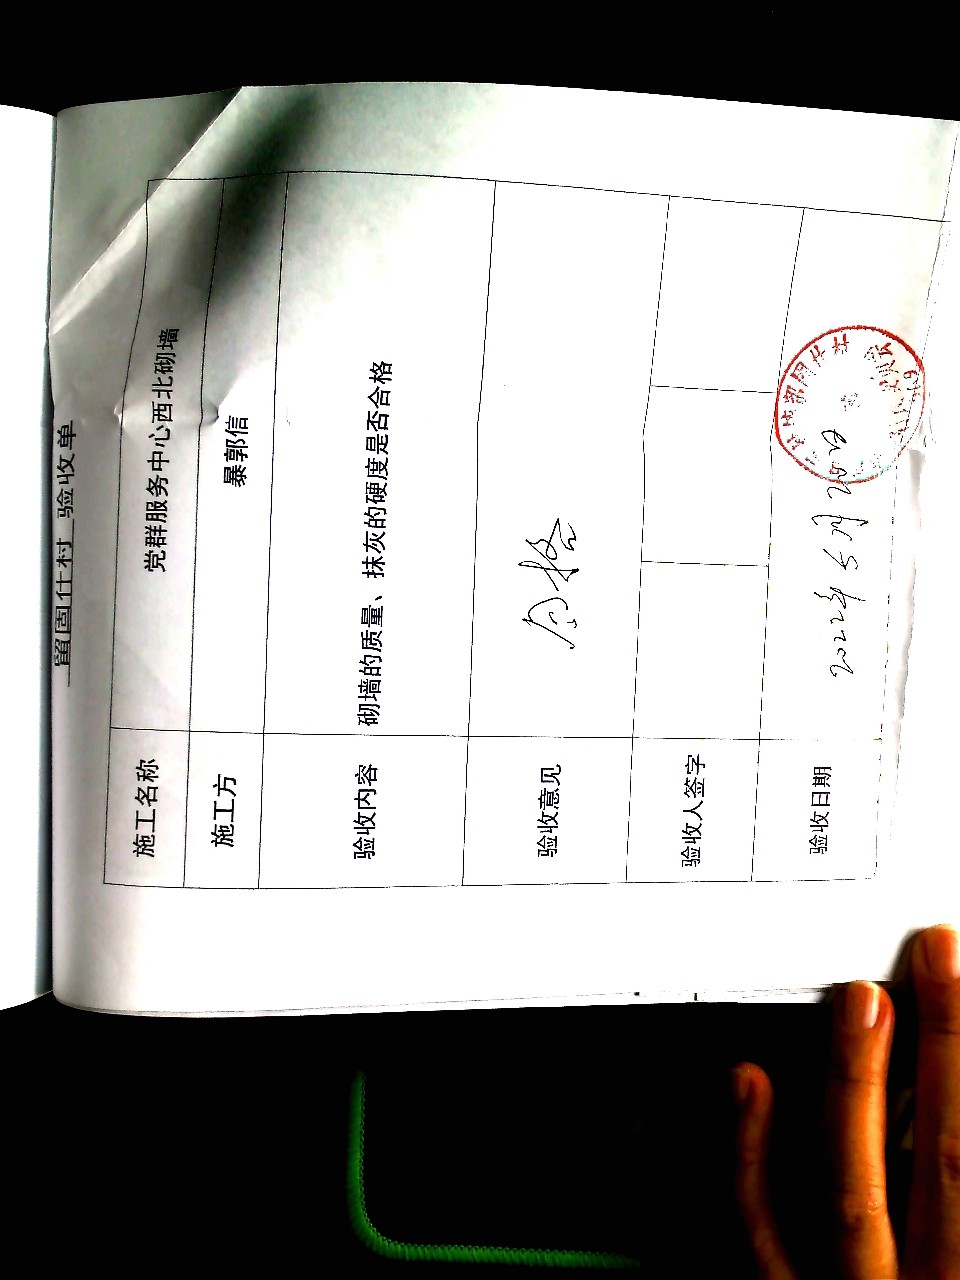 留固什村 验收单
施工名称 党群服务中心西北砌墙
施工方 暴郭信
验收内容 砌墙的质量、抹灰的硬度是否合格
验收意见 合格
验收人签字
验收日期 2022年5月